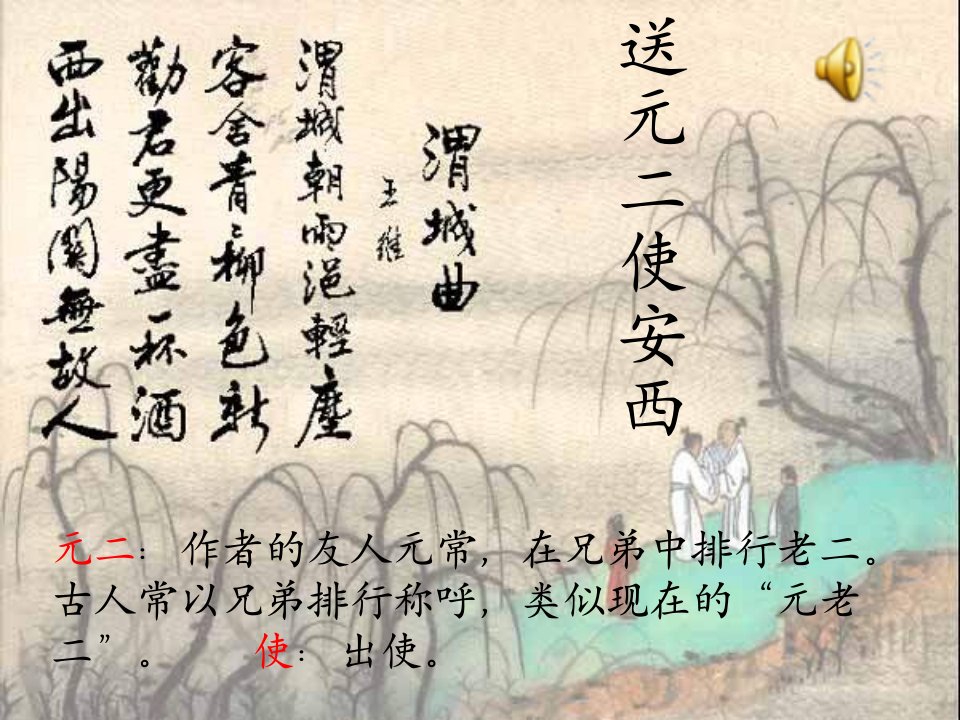 送元二使安西
渭城曲
王維
渭城朝雨浥輕塵
客舍青ミ柳色新
勸君更盡一杯酒
西出陽關無故人
元二：作者的友人元常，在兄弟中排行老二。
古人常以兄弟排行称呼，类似现在的“元老
二”。 使：出使。